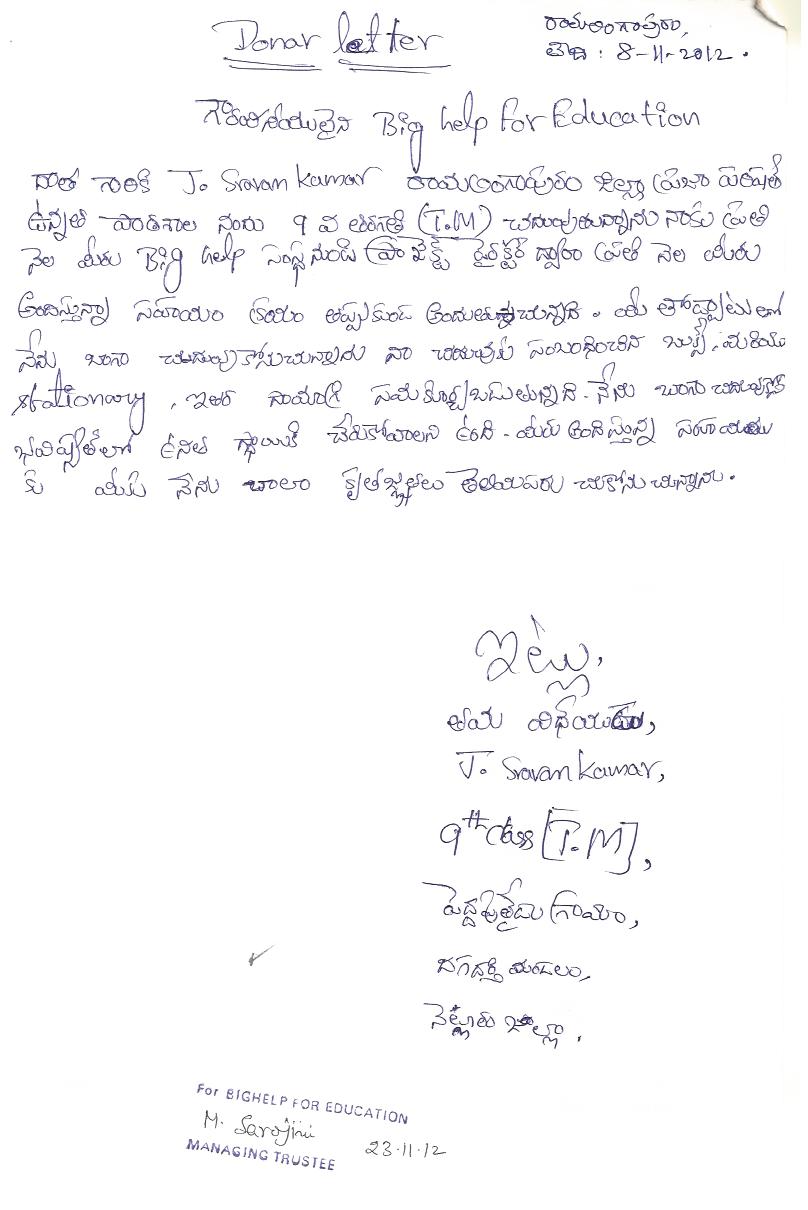 Donar letter
రామలింగాపురం,
తేది : 8-11-2012.
గౌరవనీయులైన Big help for Education
దాత గారికి J. Sravan Kumar రామలింగాపురం జిల్లా ప్రజా పరిషత్
ఉన్నత పాఠశాల నందు 9 వ తరగతి (T.M) చదువుతున్నాను నాకు ప్రతి
నెల మీరు Big help సంస్థ నుండి ప్రాజెక్ట్ డైరెక్టర్ ద్వారా ప్రతి నెల మీరు
అందిస్తున్నా సహాయం అందుతున్నది.
నేను బాగా చదువుకోనుచున్నాను నా చదువుకు సంబంధించిన బుక్స్, మరియు
stationary, ఇతర సమకూర్చబడుతున్నది. నేను బాగా చదివుకొని
భవిష్యత్‌లో ఉన్నత స్థాయికి చేరుకోవాలని ఉంది. మీరు అందిస్తున్న సహాయము
కు మీకు నేను చాలా కృతజ్ఞతలు తెలియపరుచుకోనుచున్నాను.
ఇట్లు,
తమ విధేయుడు,
J. Sravan Kumar,
9th class [T.M],
పెద్దపుత్తేడు గ్రామం,
దగదర్తి మండలం,
నెల్లూరు జిల్లా.
For BIGHELP FOR EDUCATION
M. Sarojini
MANAGING TRUSTEE
23.11.12